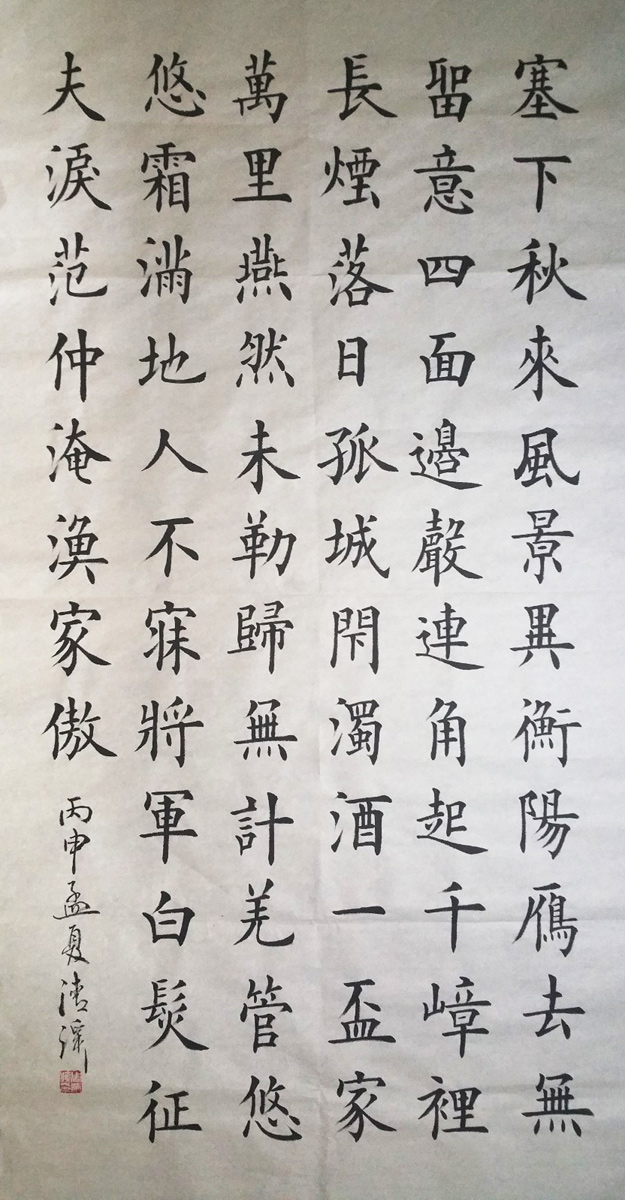 塞下秋來風景異衡陽雁去無
留意四面邊聲連角起千嶂裡
長煙落日孤城閇濁酒一盃家
萬里燕然未勒歸無計羌管悠
悠霜滿地人不寐將軍白髮征
夫淚范仲淹漁家傲
丙申孟夏清